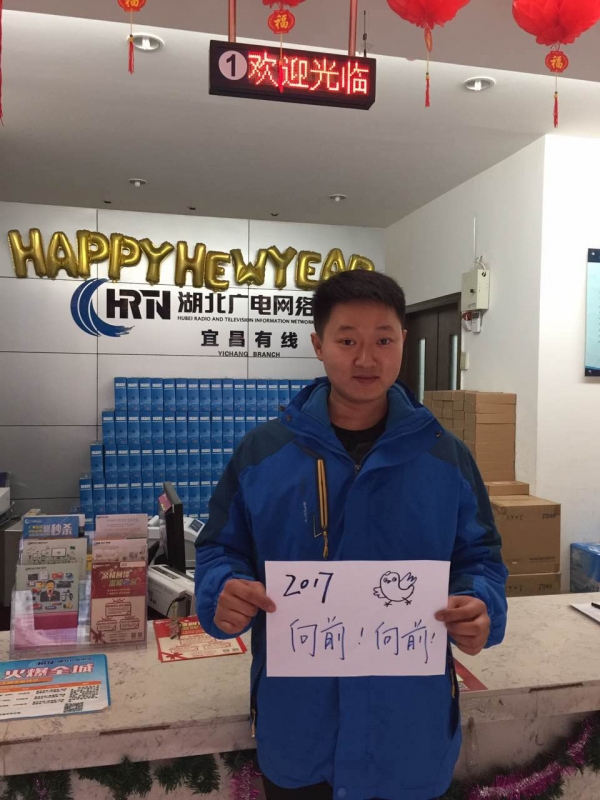 福
福
福
①欢迎光临
HAPPY HEW YEAR
HRTN 湖北广电网络
HUBEI RADIO AND TELEVISION INFORMATION NETWORK
宜昌有线
YICHANG BRANCH
秒杀
2017
向前！向前！
HRTN
火爆全城